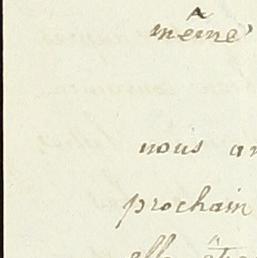 même
nous
prochain
elle